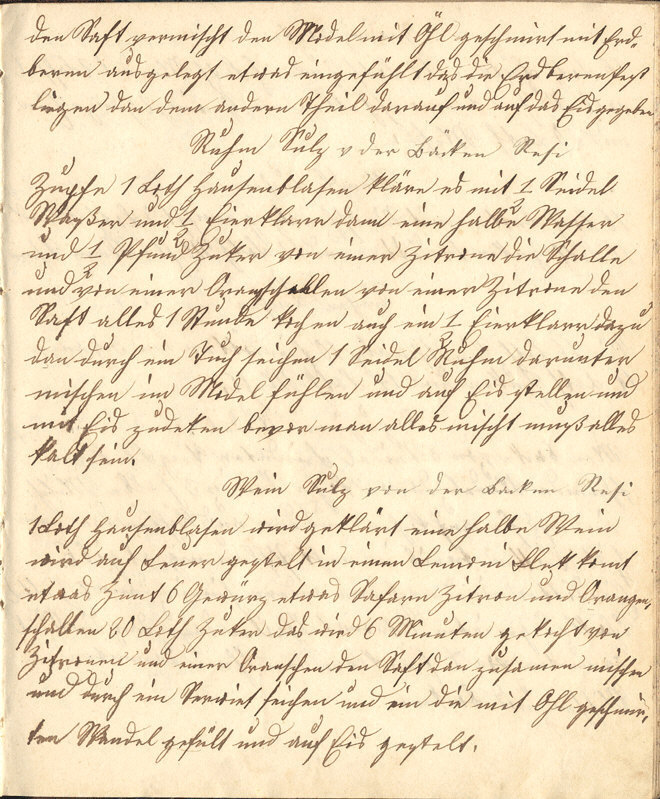 den Saft vermischt den Model mit Öhl geschmirt mit Erd-
beren ausgelegt etwas eingefühlt das die Erdberen fest
liegen dan dem andern Theil darauf und auf das Eis gegeben
Ruhm Sulz v der Bäcken Resi
Zupfe 1 Loth Hausenblasen kläre es mit 1/2 Seidel
Waßer und 1/2 Eierklarr dann eine halbe Wasser
und 1/2 Pfund Zuker von einer Zitrone die Schalle
und von einer Oranschallen von einer Zitrone den
Saft alles 1 Stunde kochen auch ein 1/2 Eierklarr dazu
dan durch ein Tuch seichen 1 Seidel Ruhm darunter
mischen im Model fühlen und auf Eis stellen und
mit Eis zudeken bevor man alles mischt muß alles
kalt sein.
Wein Sulz von der Backen Resi
1 Loth Hausenblasen wird geklärt eine halbe Wein
wird auf Feuer gestelt in einen Lemoni Flek komt
etwas Zimt 6 Gewürz etwas Safarn Zitron und Orangen,
schallen 20 Loth Zuker das wird 6 Minuten gekocht von
Zitronen und einer Oranschen den Saft dan zusamen mischen
und durch ein Serviet seichen und ein die mit Öhl geschmir,
ten Wandel gefült und auf Eis gestelt.